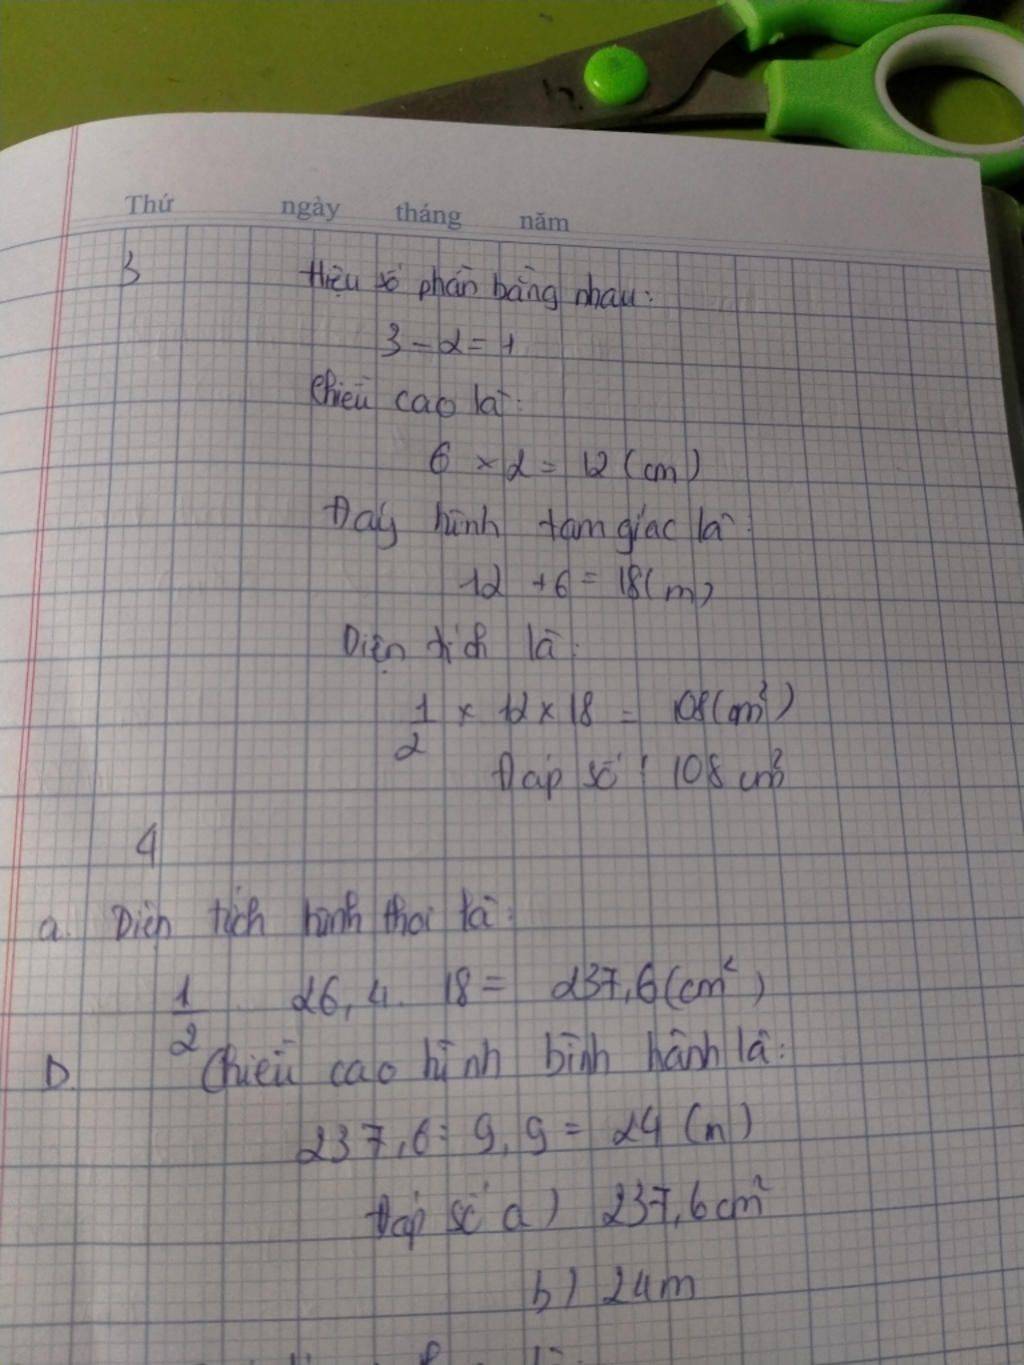 Thứ ngày tháng năm
3 Hiệu số phần bằng nhau:
3 - 2 = 1
Chiều cao là:
6 × 2 = 12 (cm)
Đáy hình tam giác là:
12 + 6 = 18 (m)
Diện tích là:
1/2 × 12 × 18 = 108 (cm²)
Đáp số: 108 cm²
4
a. Diện tích hình thoi là:
1/2 . 26,4 . 18 = 237,6 (cm²)
b. Chiều cao hình bình hành là:
237,6 : 9,9 = 24 (m)
Đáp số a) 237,6 cm²
b) 24m